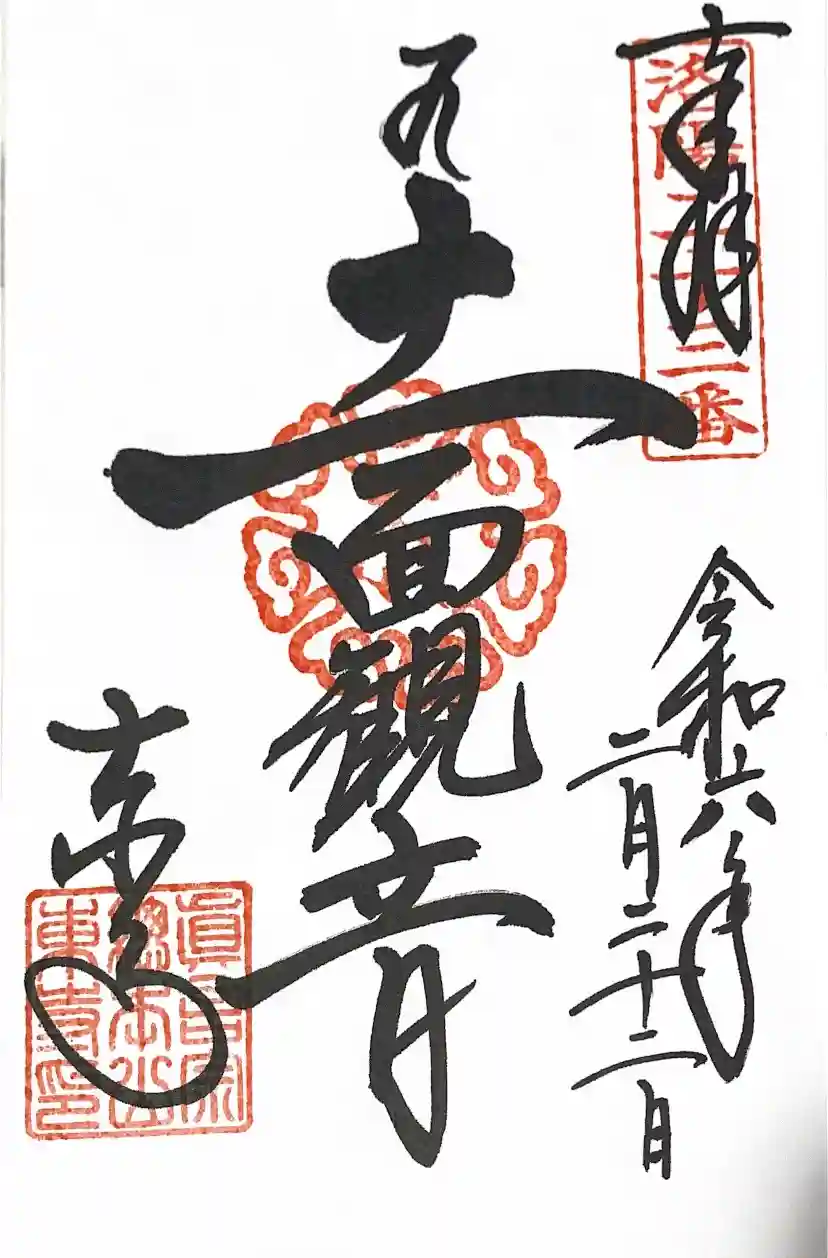 奉拝
洛陽二十三番
令和六年
二月二十二日
十一面観音
東寺
眞言宗
總本山
東寺印